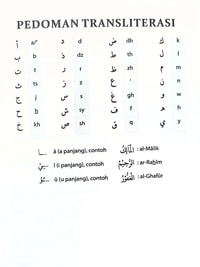 PEDOMAN TRANSLITERASI
أ a/' د d ض dh ك k
ب b ذ dz ط th ل l
ت t ر r ظ zh م m
ث ts ز z ع ' ن n
ج j س s غ gh و w
ح ẖ ش sy ف f ه h
خ kh ص sh ق q ي y
ـَـا ā (a panjang), contoh اَلْمَالِكُ : al-Mālik
ـِـيْ ī (i panjang), contoh اَلرَّحِيْمُ : ar-Raẖīm
ـُـوْ ū (u panjang), contoh اَلْغَفُوْرُ : al-Ghafūr